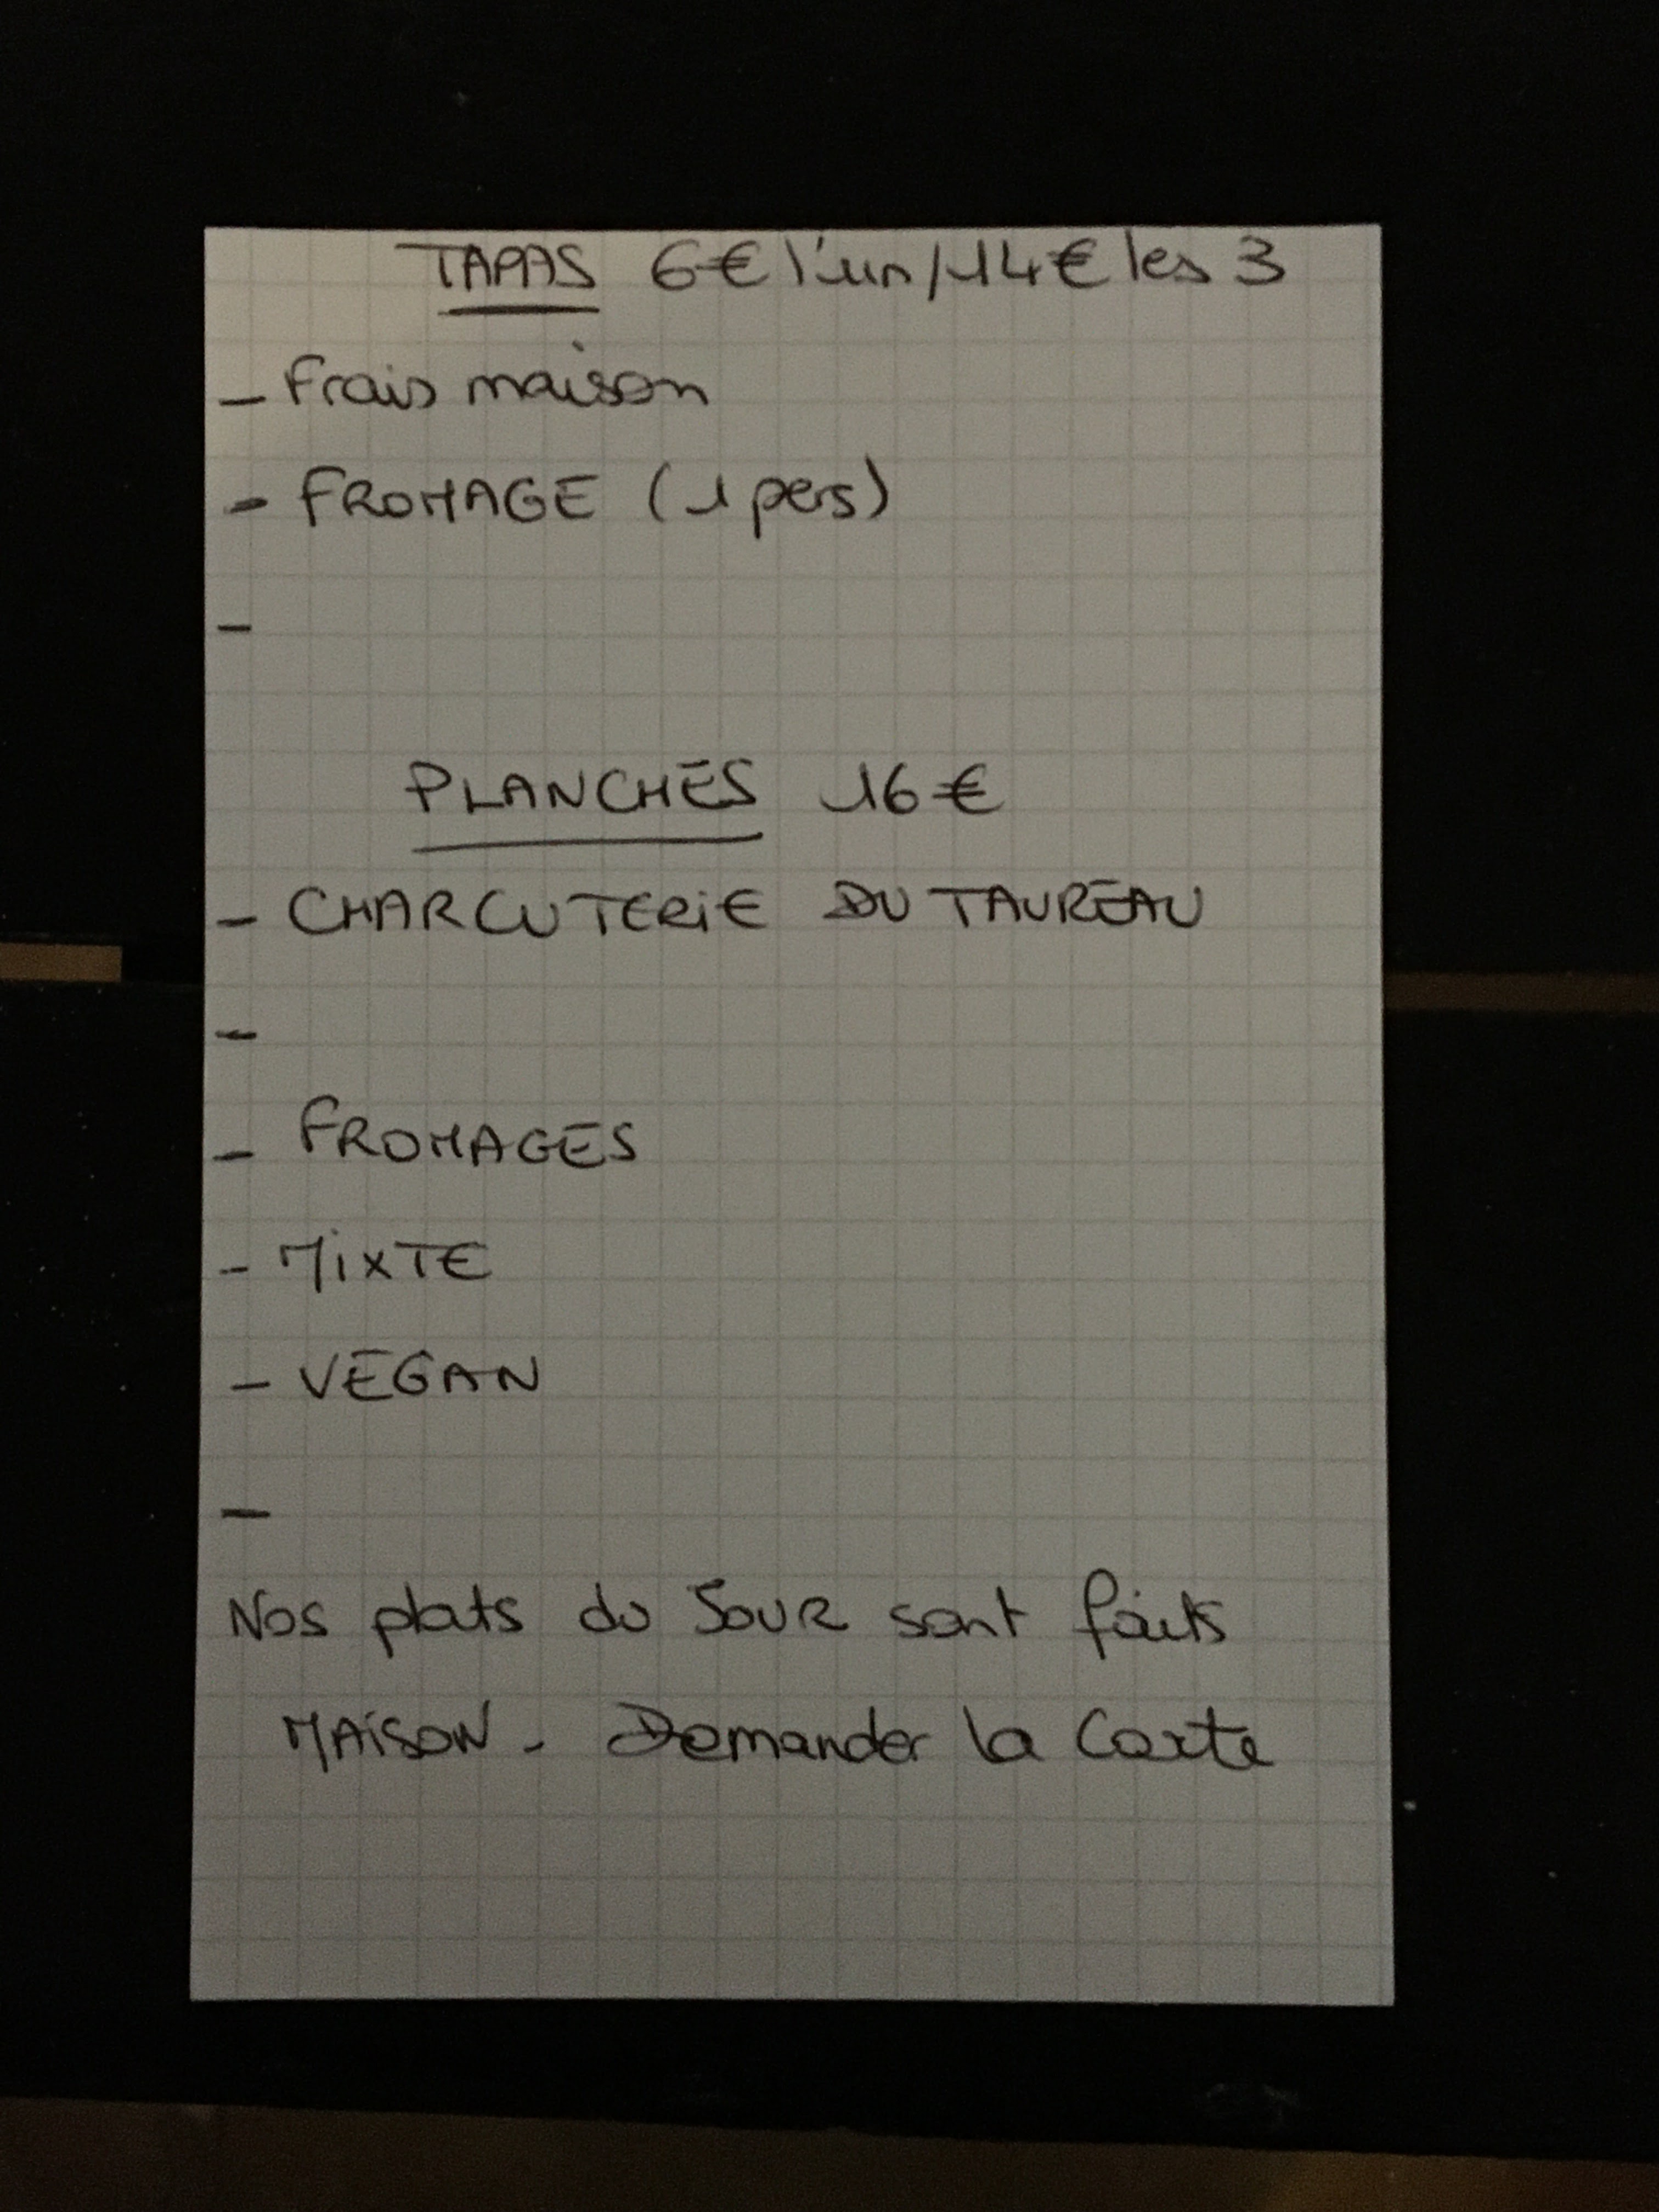 TAPAS 6€ l'un/14€ les 3
- Frais maison
- FROMAGE (1 pers)
-
PLANCHES 16€
- CHARCUTERIE DU TAUREAU
-
- FROMAGES
- MiXTE
- VEGAN
-
Nos plats du JOUR sont faits
MAiSON - Demander la Carte